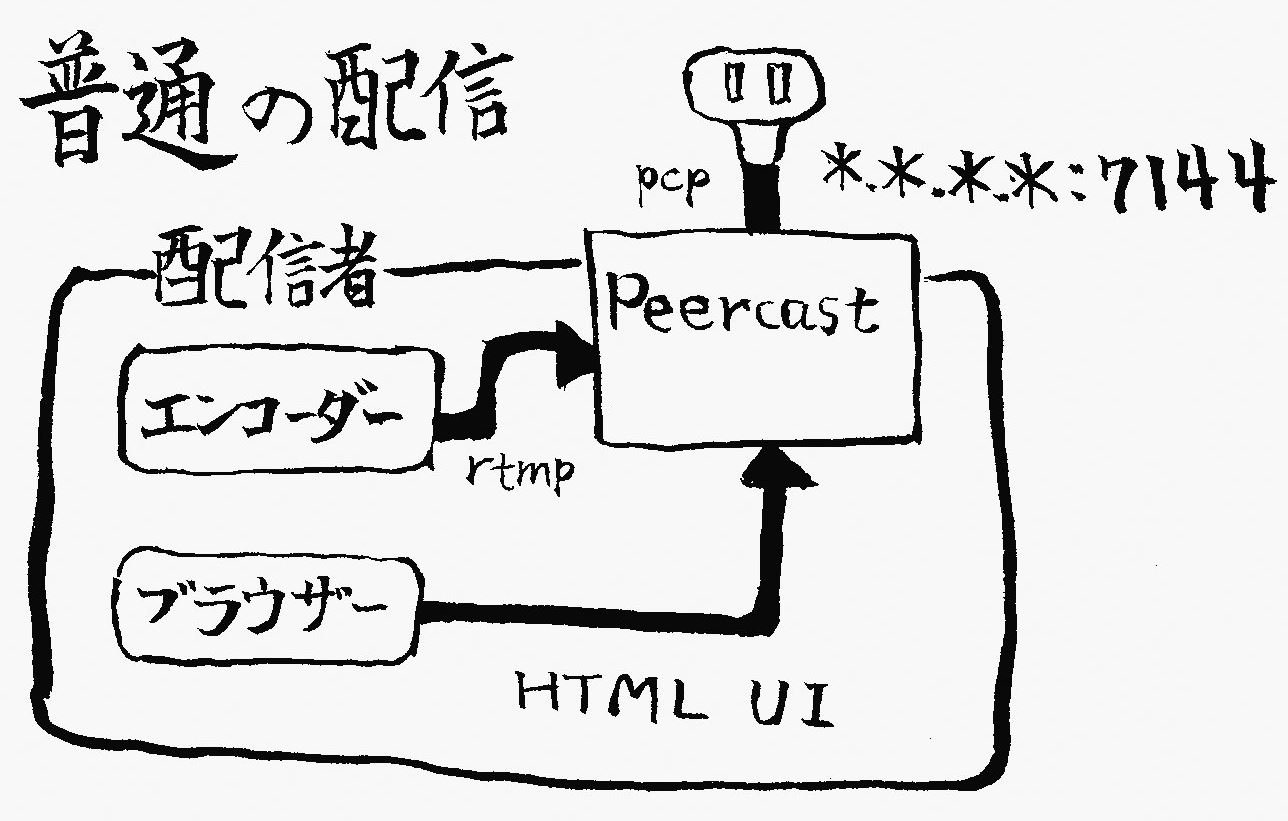 普通の配信
pcp
*.*.*.*:7144
配信者
Peercast
エンコーダー
rtmp
ブラウザー
HTML UI